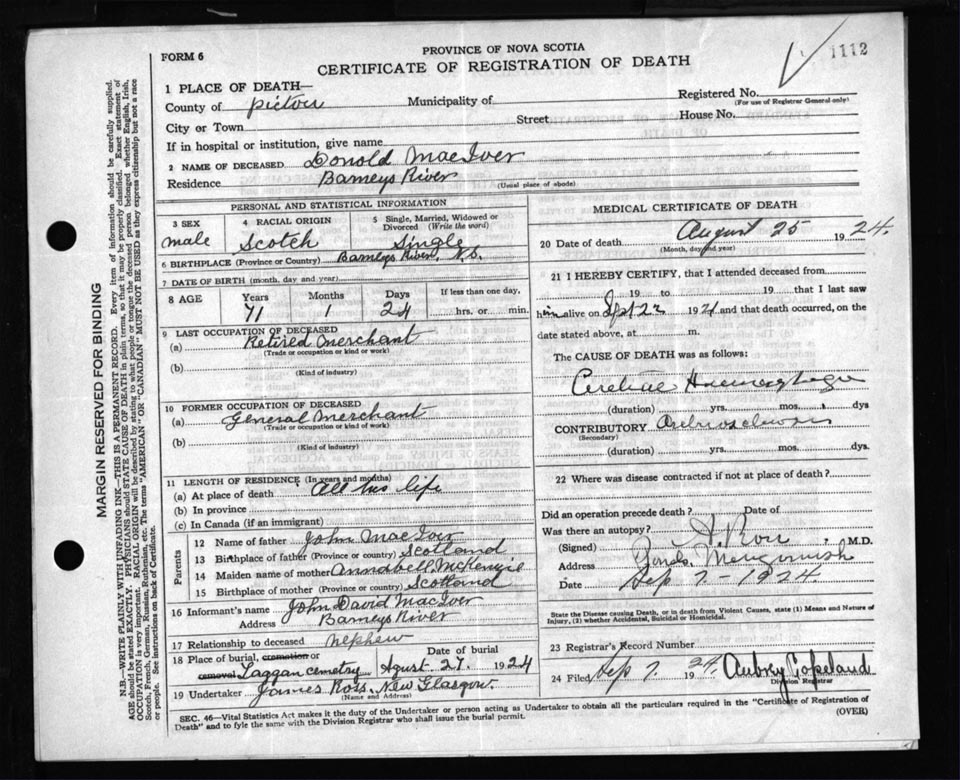 PROVINCE OF NOVA SCOTIA
FORM 6
CERTIFICATE OF REGISTRATION OF DEATH
1112
1 PLACE OF DEATH—
County of Pictou Municipality of
Registered No.
(For use of Registrar General only)
City or Town Street House No.
If in hospital or institution, give name
2 NAME OF DECEASED Donold MacIver
Residence Barneys River
(Usual place of abode)
PERSONAL AND STATISTICAL INFORMATION
3 SEX male
4 RACIAL ORIGIN Scotch
5 Single, Married, Widowed or Divorced (Write the word) Single
6 BIRTHPLACE (Province or Country) Barneys River, N.S.
7 DATE OF BIRTH (month, day and year)
8 AGE Years 71 Months 1 Days 24 If less than one day, hrs. or min.
9 LAST OCCUPATION OF DECEASED
(a) Retired Merchant
(Trade or occupation or kind or work)
(b)
(Kind of industry)
10 FORMER OCCUPATION OF DECEASED
(a) General Merchant
(Trade or occupation or kind or work)
(b)
(Kind of industry)
11 LENGTH OF RESIDENCE (In years and months)
(a) At place of death All his life
(b) In province
(c) In Canada (if an immigrant)
Parents
12 Name of father John MacIver
13 Birthplace of father (Province or country) Scotland
14 Maiden name of mother Annabell McKenzie
15 Birthplace of mother (Province or country) Scotland
16 Informant's name John David MacIver
Address Barneys River
17 Relationship to deceased Nephew
18 Place of burial, cremation or removal Laggan cemetry
Date of burial Agust 27, 1924
19 Undertaker James Ross, New Glasgow.
(Name and Address)
MEDICAL CERTIFICATE OF DEATH
20 Date of death August 25 1924
(Month, day and year)
21 I HEREBY CERTIFY, that I attended deceased from
19 to 19 that I last saw
him alive on 192 and that death occurred, on
date stated above, at m.
The CAUSE OF DEATH was as follows:
Hemorrhage
(duration) yrs. mos. dys
CONTRIBUTORY
(Secondary)
(duration) yrs. mos. dys.
22 Where was disease contracted if not at place of death?
Did an operation precede death? Date of
Was there an autopsy?
(Signed) M.D.
Address
Date Sep 7 - 1924
State the Disease causing Death, or in death from Violent Causes, state (1) Means and Nature of Injury, (2) whether Accidental, Suicidal or Homicidal.
23 Registrar's Record Number
24 Filed Sep 7. 1924 Aubrey Copeland
Division Registrar
SEC. 46—Vital Statistics Act makes it the duty of the Undertaker or person acting as Undertaker to obtain all the particulars required in the "Certificate of Registration of
Death" and to fyle the same with the Division Registrar who shall issue the burial permit.
(OVER)
MARGIN RESERVED FOR BINDING
N.B.—WRITE PLAINLY WITH UNFADING INK—THIS IS A PERMANENT RECORD. Every item of information should be carefully supplied.
AGE should be stated EXACTLY. PHYSICIANS should STATE CAUSE OF DEATH in plain terms, so that it may be properly classified. Exact statement of
OCCUPATION is very important. RACIAL ORIGIN will be described by stating to what people or tongue the deceased person belonged whether English, Irish,
Scotch, French, German, Russian, Ruthenian, etc. The terms "AMERICAN" OR "CANADIAN" MUST NOT BE USED as they express citizenship but not a race
or people. See instructions on back of Certificate.